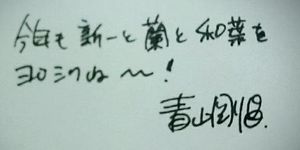 今年も新一と蘭と和葉を
ヨロシクね〜!
青山剛昌.